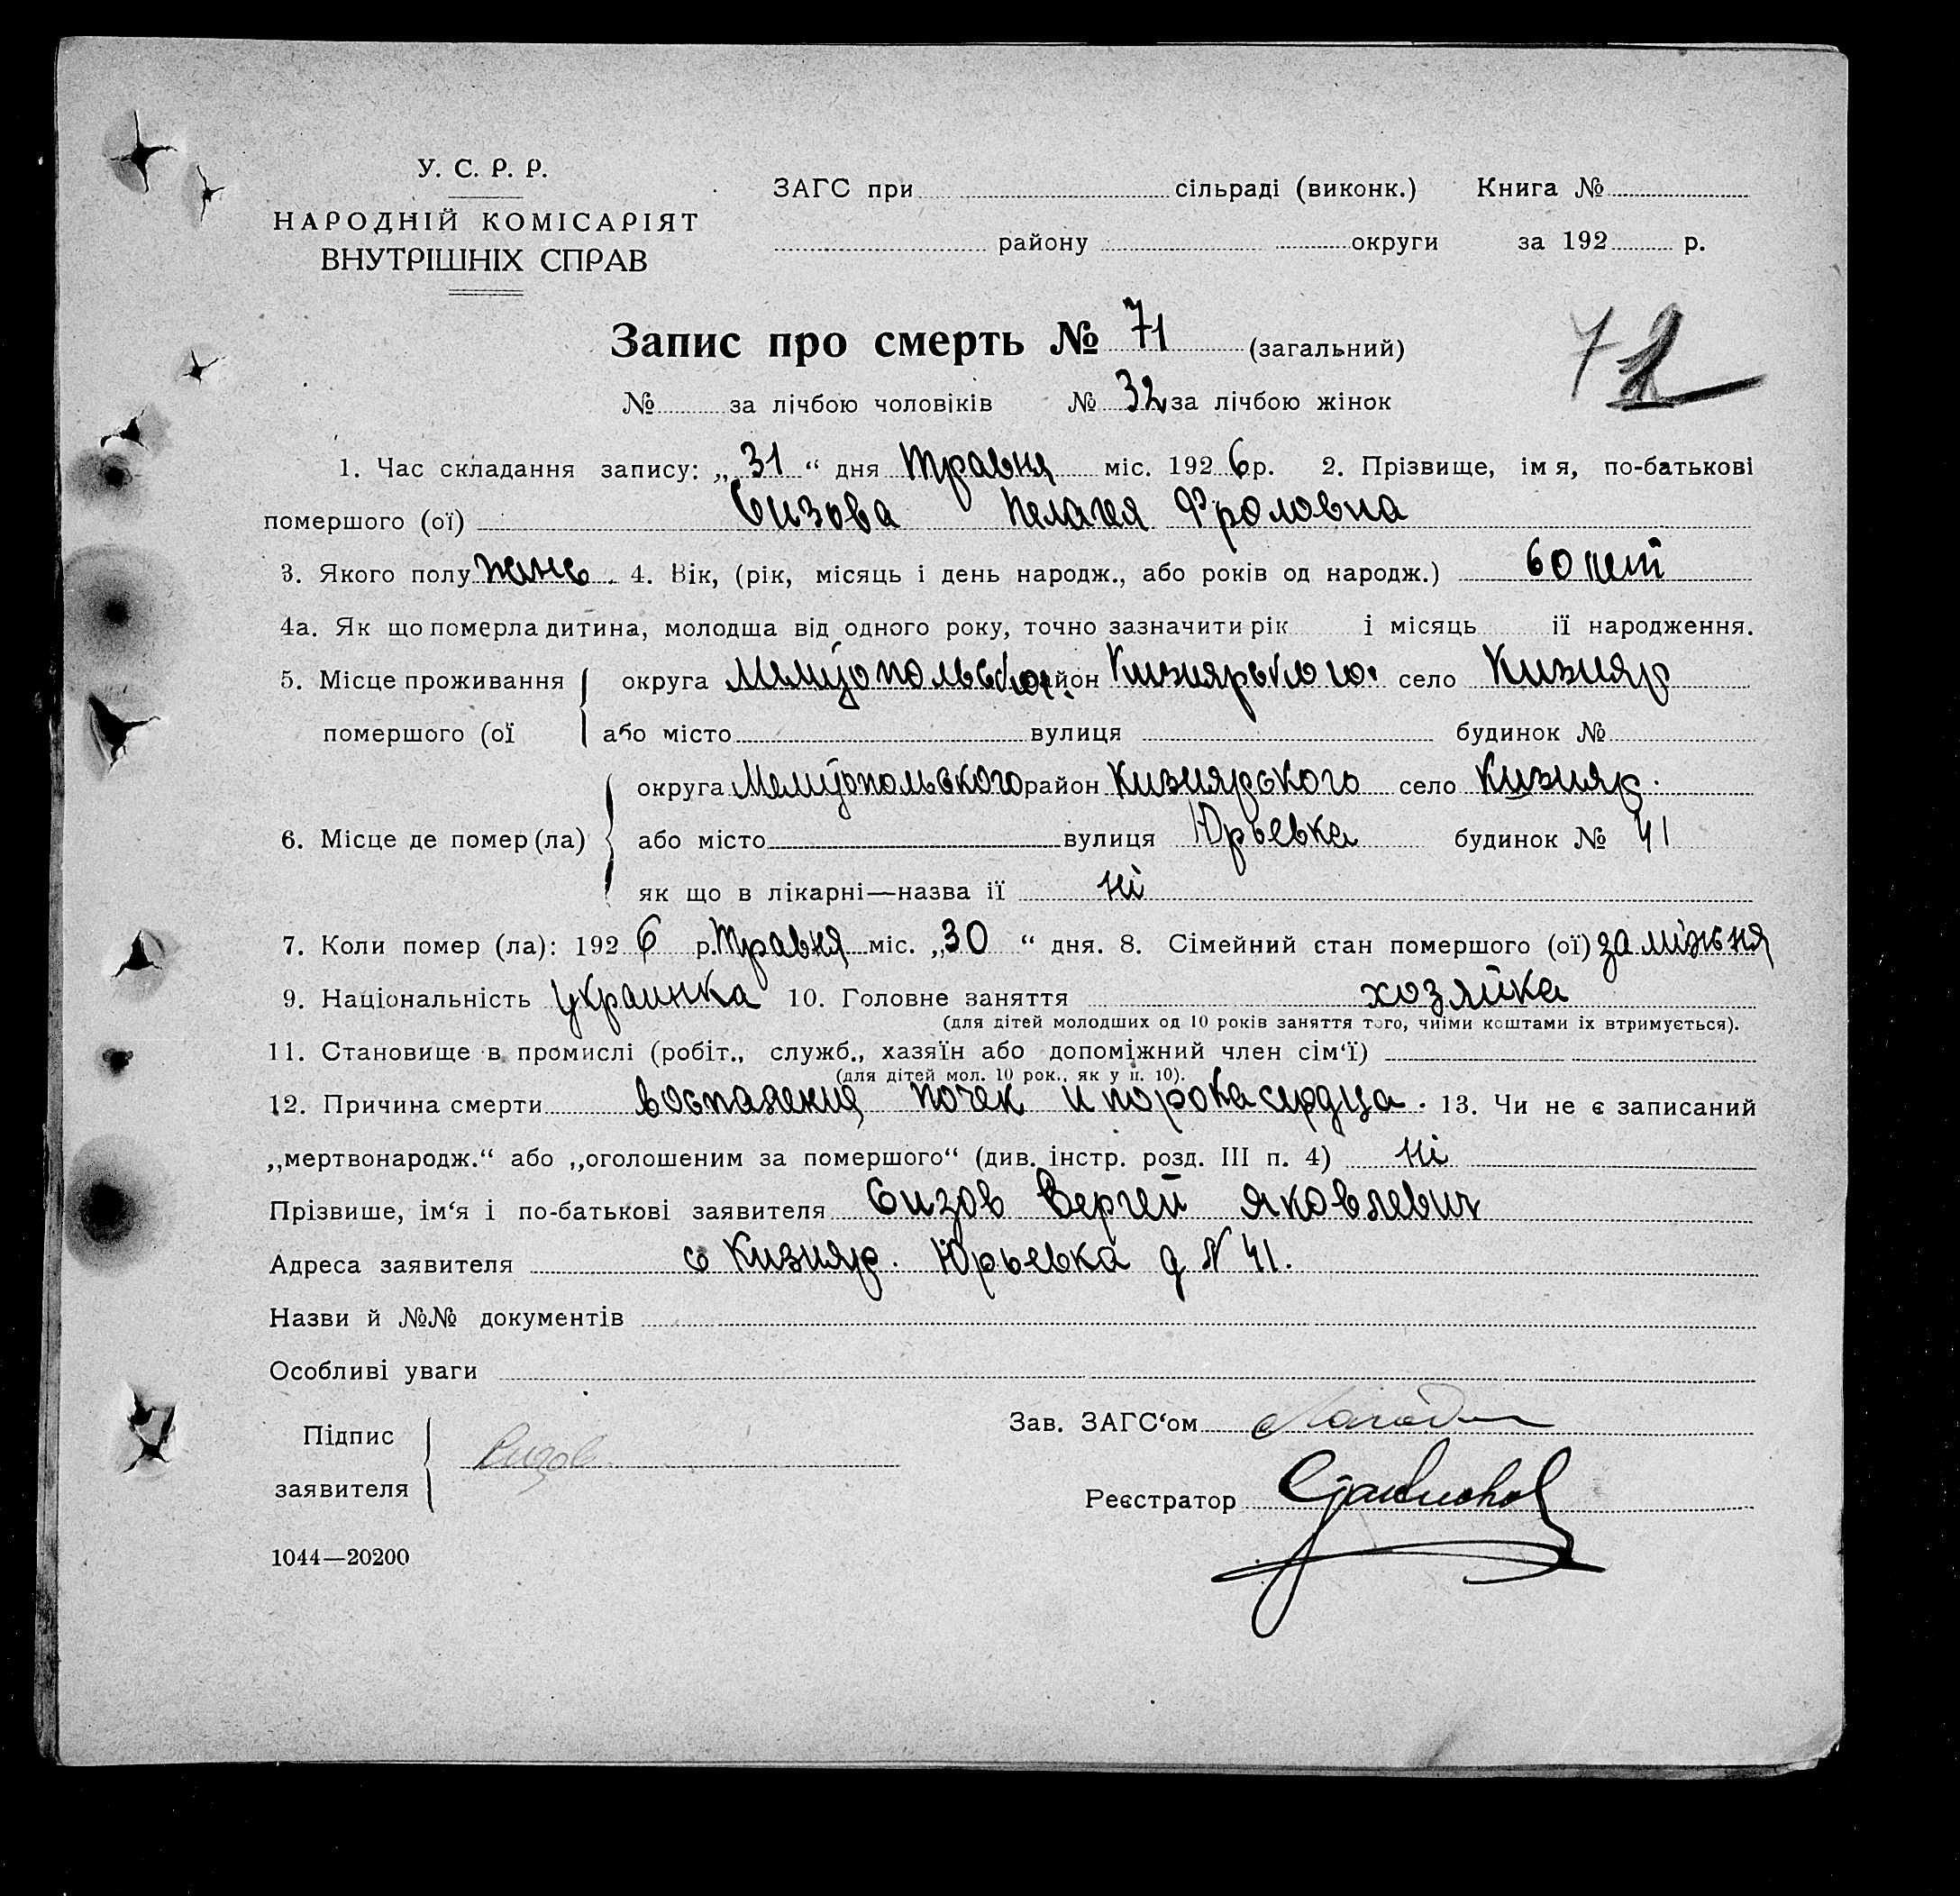 У. С. Р. Р.
НАРОДНІЙ КОМІСАРІЯТ
ВНУТРІШНІХ СПРАВ
ЗАГС при сільраді (виконк.) Книга №
району округи за 192 р.
Запис про смерть № 71 (загальний)
72
№ за лічбою чоловіків № 32 за лічбою жінок
1. Час складання запису: „31“ дня травня міс. 1926 р. 2. Прізвище, імя, по-батькові
помершого (ої) Сизова Пелагея Фроловна
3. Якого полу жіно. 4. Вік, (рік, місяць і день народж., або років од народж.) 60 лет
4а. Як що померла дитина, молодща від одного року, точно зазначити рік і місяць її народження.
5. Місце проживання округа район Кизиярського село Кизияр
помершого (ої або місто вулиця будинок №
округа Мелітопольского район Кизиярского село Кизияр.
6. Місце де помер (ла) або місто вулиця Юрьевка будинок № 41
як що в лікарні—назва її ні
7. Коли помер (ла): 1926 р. травня міс. „30“ дня. 8. Сімейний стан помершого (ої) заміжня
9. Національність украинка 10. Головне заняття хозяйка
(для дітей молодших од 10 років заняття того, чиїми коштами їх втримується).
11. Становище в промислі (робіт., служб., хазяїн або допоміжний член сім‘ї)
(для дітей мол. 10 рок., як у п. 10).
12. Причина смерти воспаления почек и порока сердца. 13. Чи не є записаний
„мертвонародж.“ або „оголошеним за помершого“ (див. інстр. розд. III п. 4) ні
Прізвише, ім‘я і по-батькові заявителя Сизов Сергей Яковлевич
Адреса заявителя с Кизияр. Юрьевка д N 41.
Назви й №№ документів
Особливі уваги
Підпис
заявителя Сизов
Зав. ЗАГС‘ом
Реєстратор
1044—20200